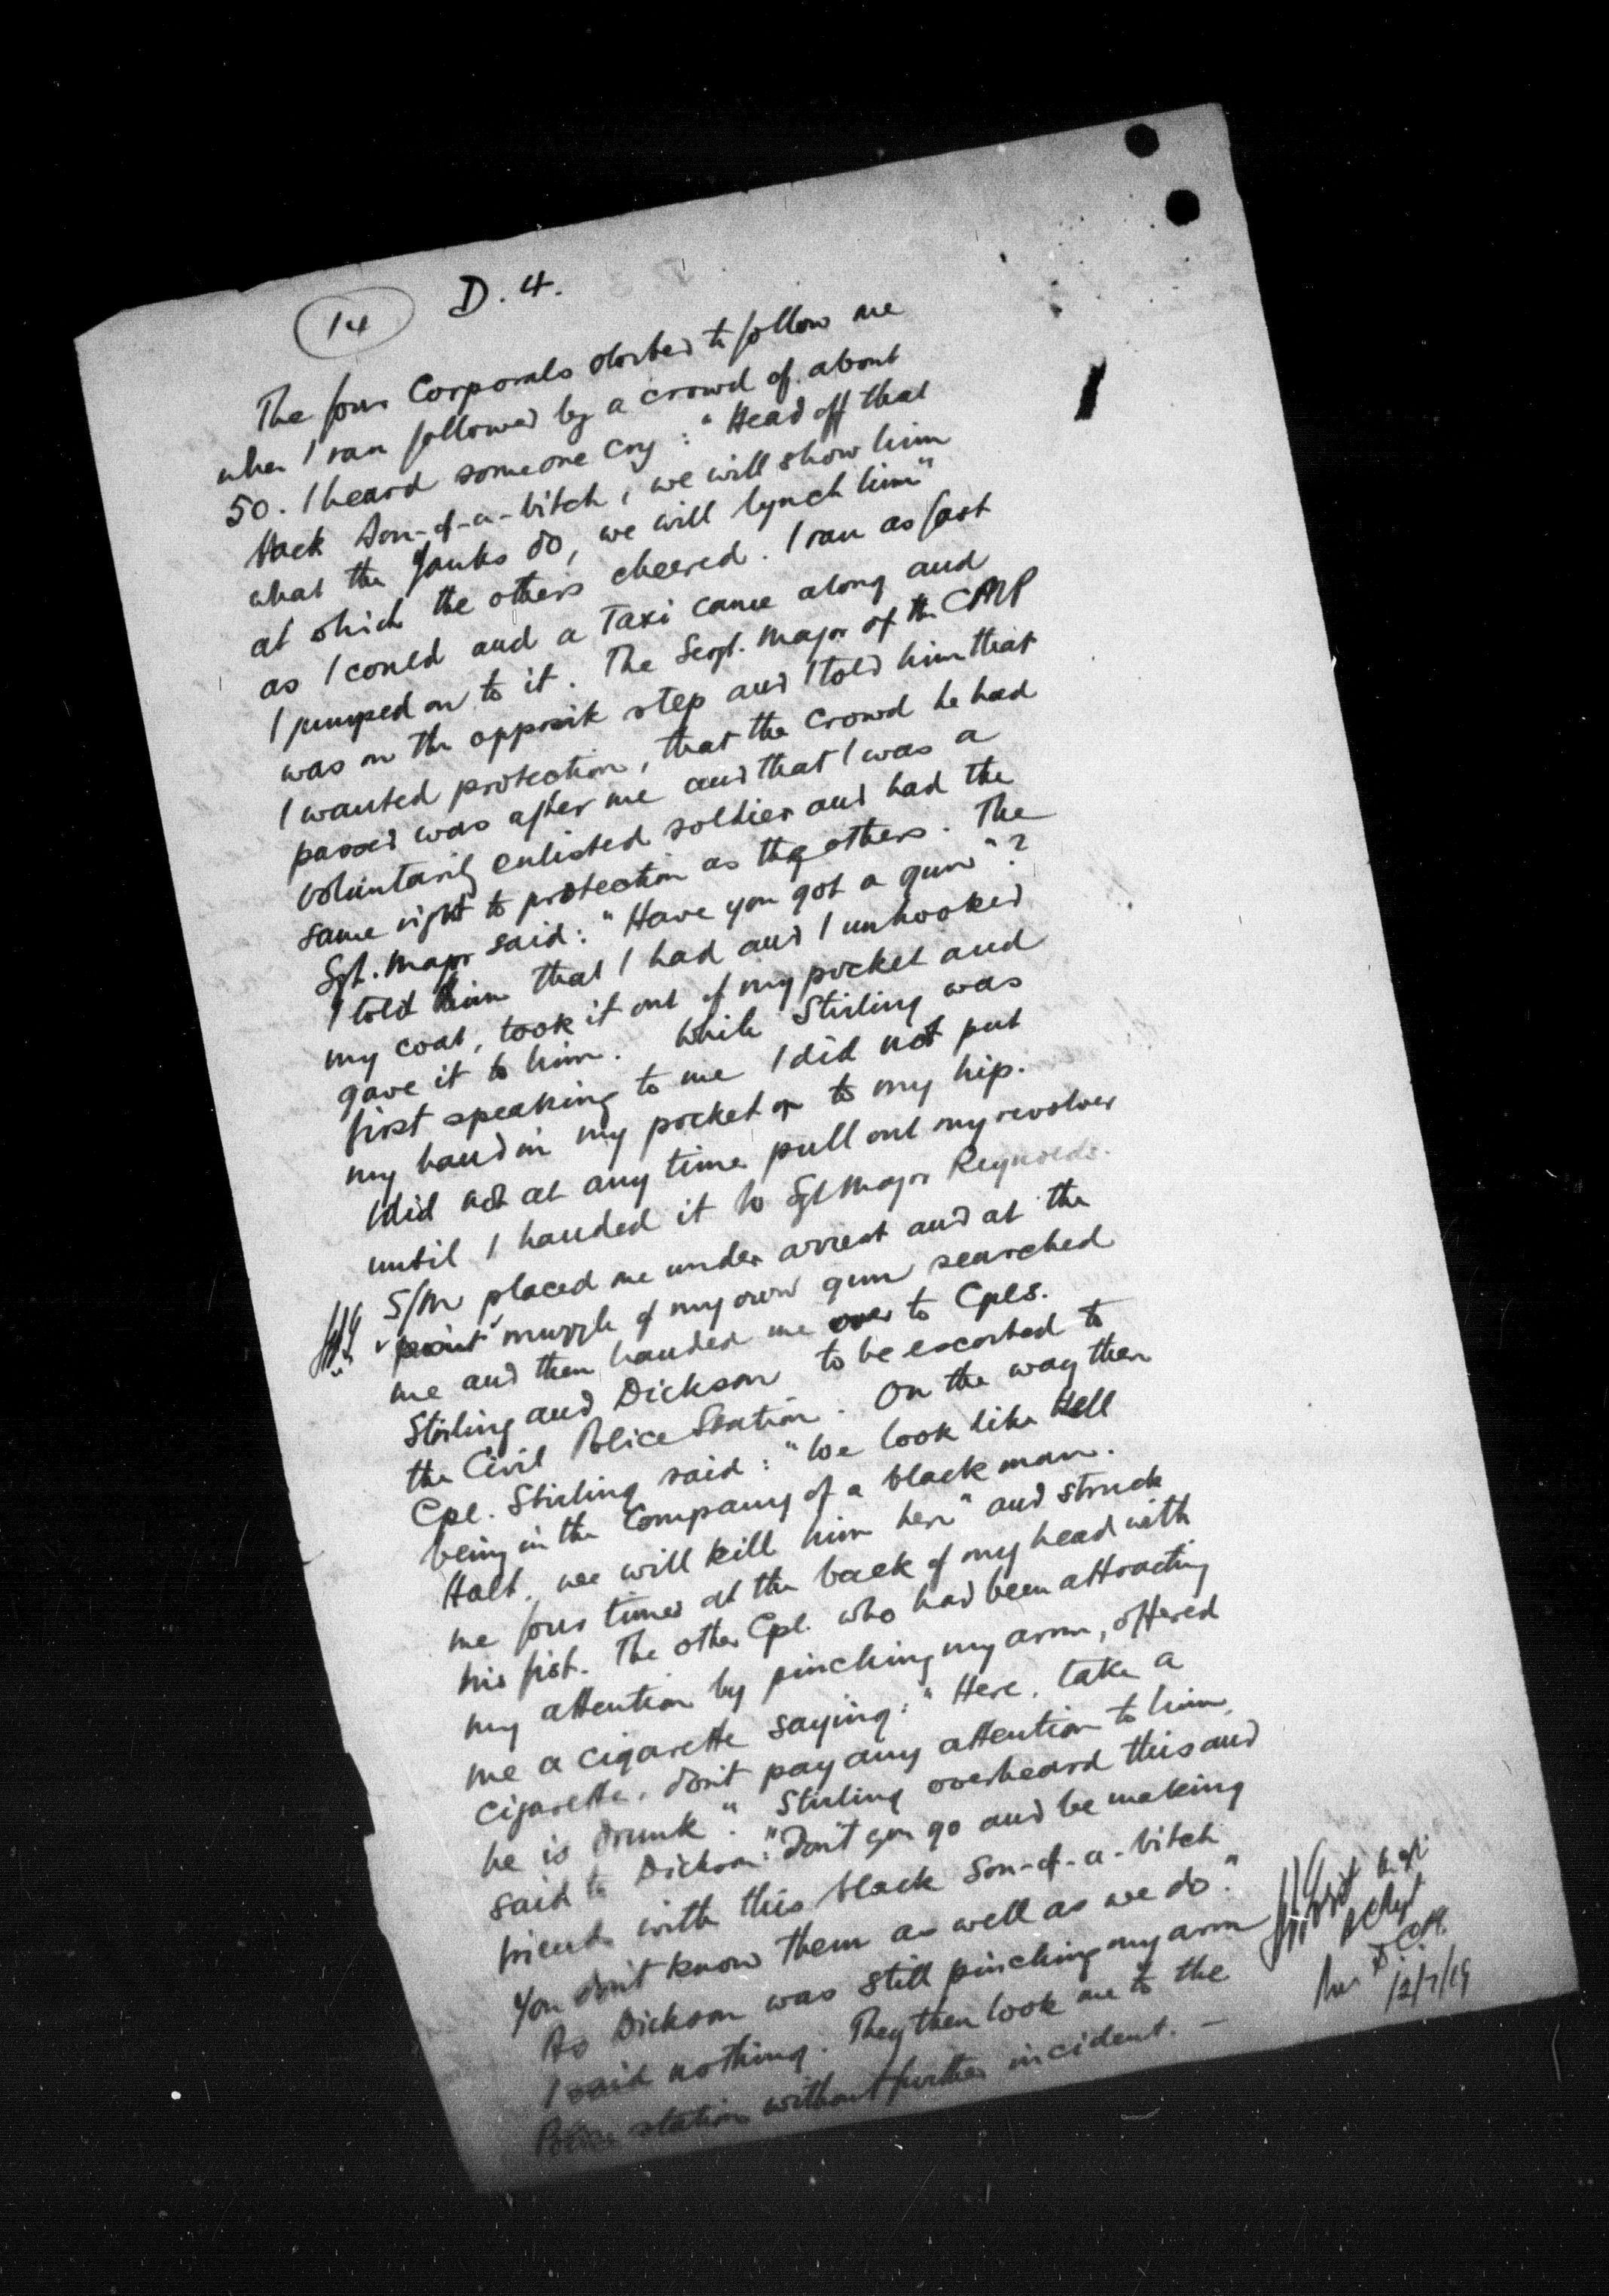 14
D. 4.
The four Corporals started to follow me
when I ran followed by a crowd of about
50. I heard someone cry: "Head off that
black Son-of-a-bitch, we will show him
what the Yanks do, we will lynch him"
at which the others cheered. I ran as fast
as I could and a Taxi came along and
I jumped on to it. The Sergt. Major of the CMP
was on the opposite step and I told him that
I wanted protection, that the crowd he had
passed was after me and that I was a
voluntarily enlisted soldier and had the
same right to protection as the others. The
Sgt. Major said: "Have you got a gun"?
I told him that I had and I unhooked
my coat, took it out of my pocket and
gave it to him. While Stirling was
first speaking to me I did not put
my hand in my pocket or to my hip.
I did not at any time pull out my revolver
until I handed it to Sgt Major Reynolds.
S/M placed me under arrest and at the
point muzzle of my own gun searched
me and then handed me over to Cpls.
Stirling and Dickson to be escorted to
the Civil Police Station. On the way then
Cpl. Stirling said: "We look like Hell
being in the Company of a black man.
Halt, we will kill him here" and struck
me four times at the back of my head with
his fist. The other Cpl. who had been attracting
my attention by pinching my arm, offered
me a cigarette saying: "Here, take a
cigarette, don't pay any attention to him,
he is drunk." Stirling overheard this and
said to Dickson: "Don't you go and be making
friends with this black Son-of-a-bitch
You don't know them as well as we do."
As Dickson was still pinching my arm
I said nothing. They then took me to the
Police station without further incident. —
D.C.M.
12/7/19